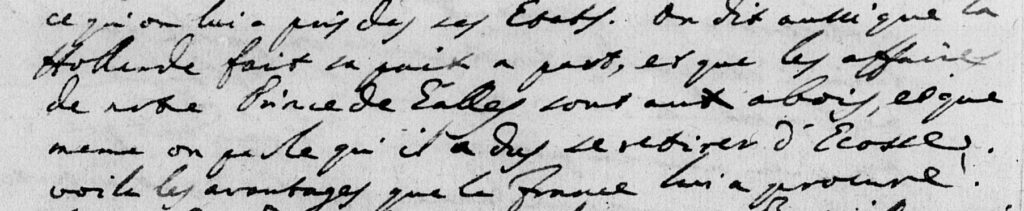 ce qu'on lui a pris des ses Etats. On dit aussi que la
Hollande fait sa paix a part, et que les affaires
de notre Prince de Galles sont aux abois, et que
meme on parle qu'il a du se retirer d'Ecosse,.
voila les avantages que la France lui a procuré.